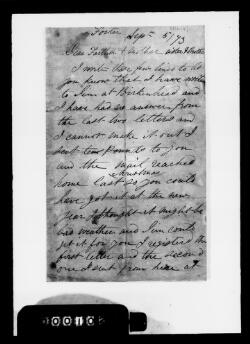 Foster Sept 5/73
Dear Father & Mother Sister & Brothers
I write these few lines to let
you know that I have wrote
to Jim at Birkenhead and
I have had no answer from
the last two letters and
I cannot make it out I
sent ten Pounds to you
and the mail reached
home last Christmas so you could
have got it at the new
year I thought it might be
bad weather and Jim could
get it for you I registered the
first letter and the second
one I sent from here at
0010